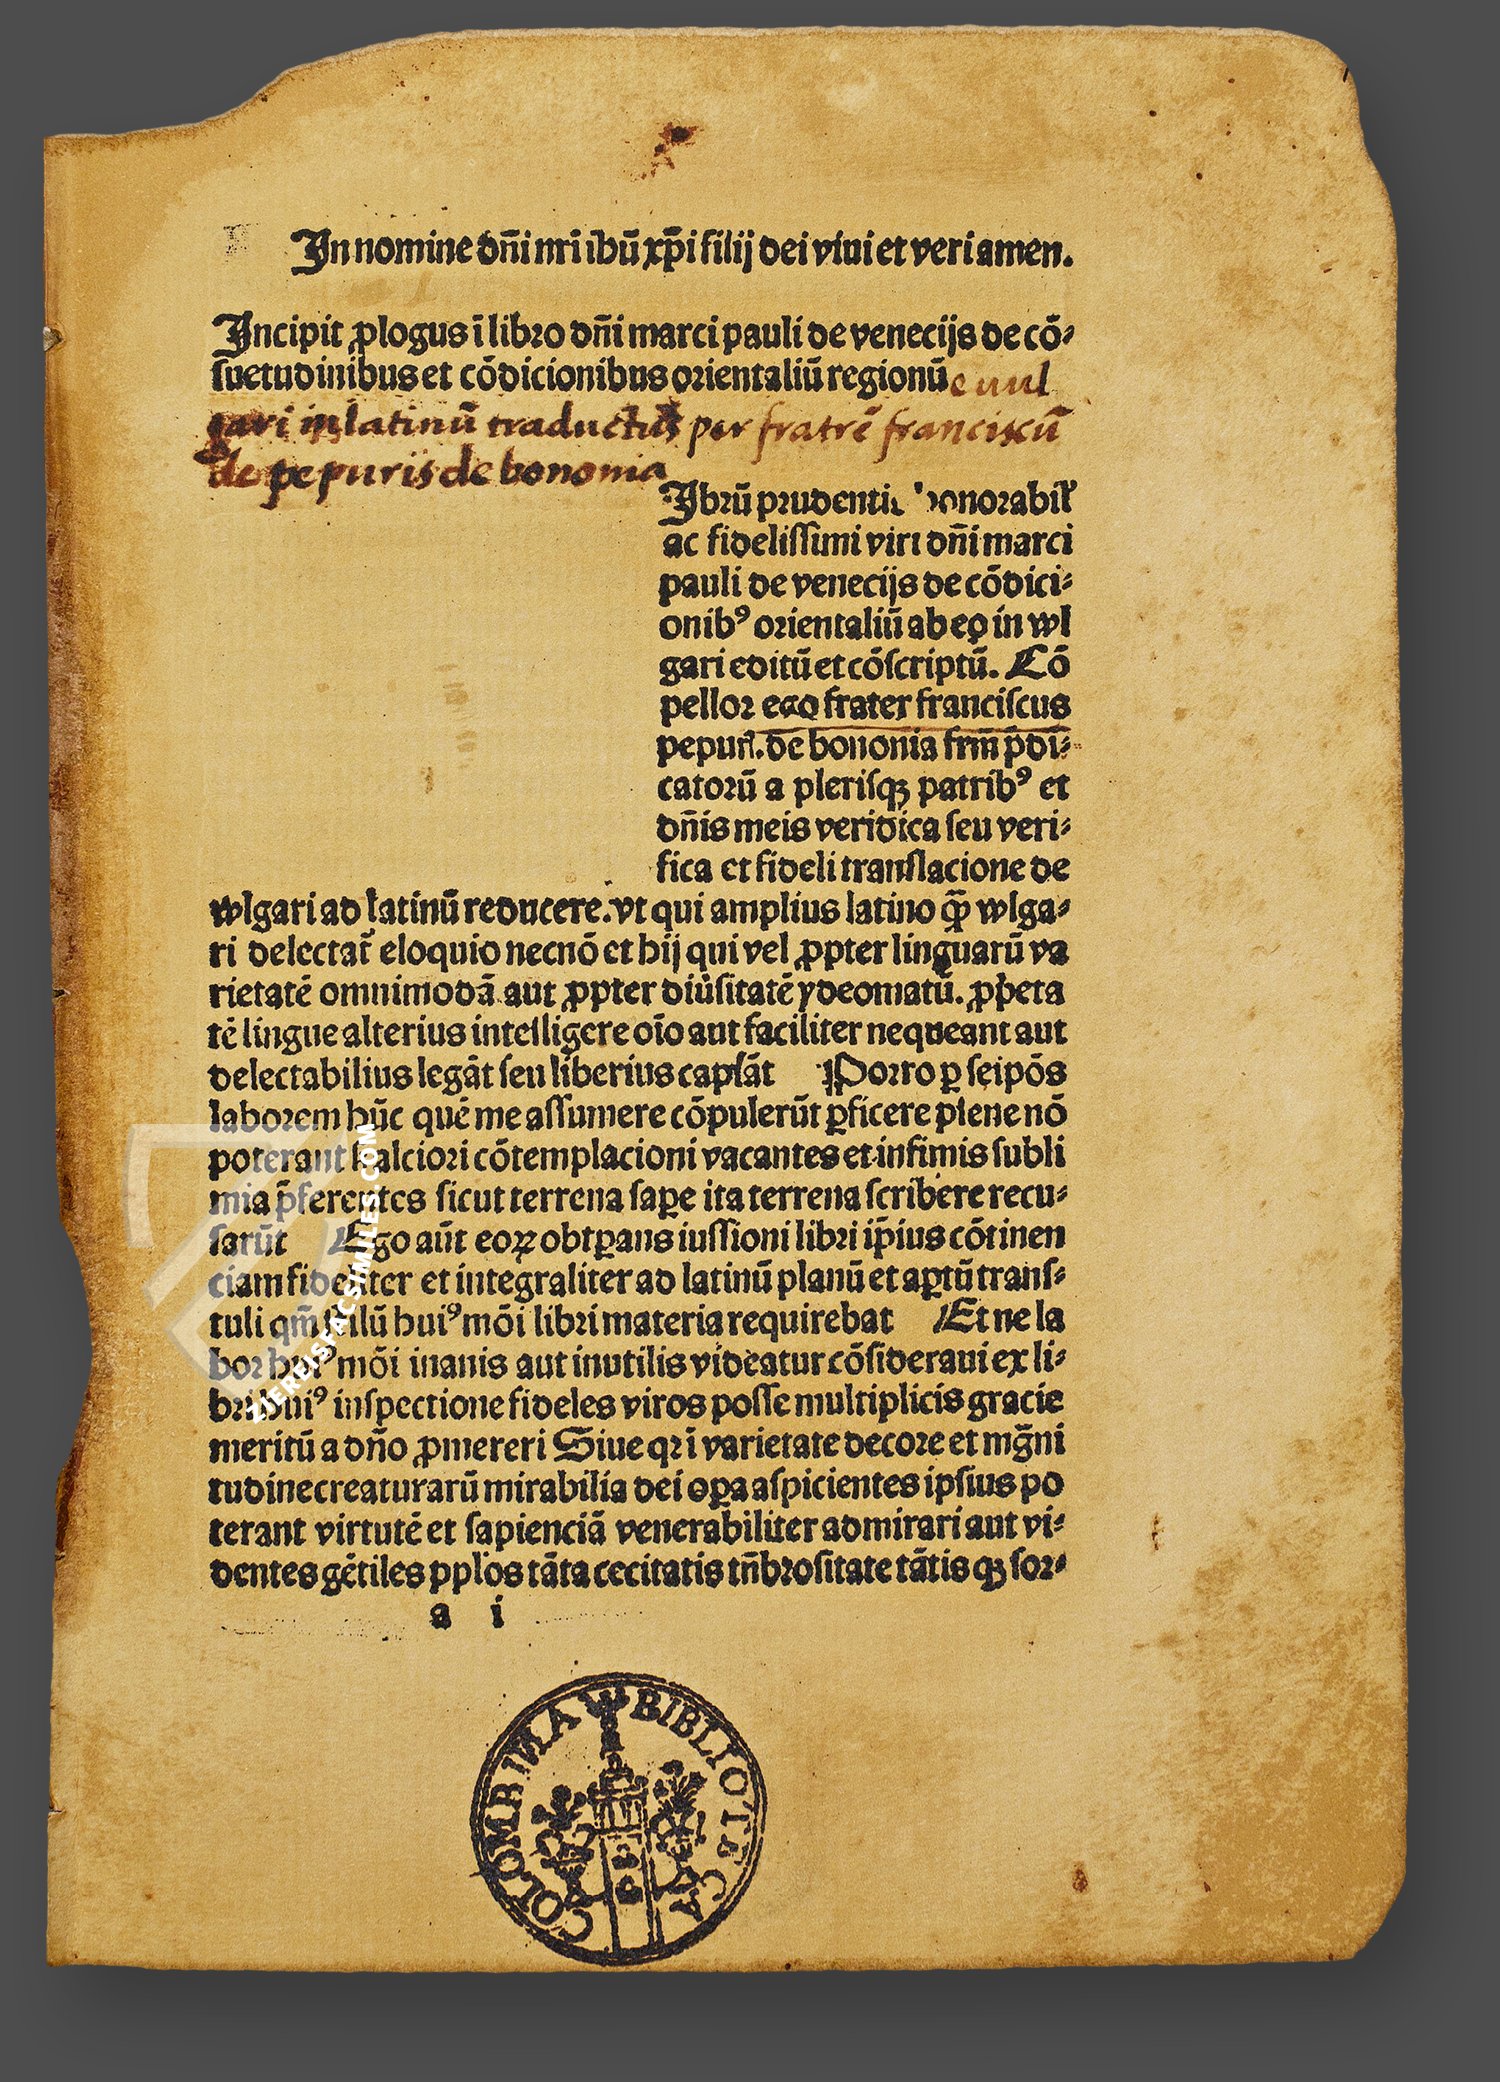 In nomine dñi nri ihū xp̄i filij dei viui et veri amen.
Incipit ꝓlogus ī libro dñi marci pauli de venecijs de cō⸗
suetudinibus et cōdicionibus orientaliū regionū e uul
gari in latinū traductus per fratrē franciscū
de pepuriis de bononia
Ibrū prudentis honorabil̓
ac fidelissimi viri dñi marci
pauli de venecijs de cōdici⸗
onibꝰ orientaliū ab eo in wl
gari editū et cōscriptū. Cō
pellor ego frater franciscus
pepuri. de bononia frm̄ p̄di⸗
catorū a plerisqꝫ patribꝰ et
dñis meis veridica seu veri⸗
fica et fideli translacione de
wlgari ad latinū reducere. vt qui amplius latino qꝫ̄ wlga⸗
ri delectat̄ eloquio necnō et hij qui vel ꝓpter linguarū va
rietatē omnimodā aut ꝓpter diūsitatē ydeomatū. ꝓp̄eta
tē lingue alterius intelligere oīo aut faciliter nequeant aut
delectabilius legāt seu liberius capāt Porro ꝑ seipōs
laborem hūc quē me assumere cōpulerūt ꝑficere plene nō
poterant alciori cōtemplacioni vacantes et infimis subli
mia p̄ferentes sicut terrena saꝑe ita terrena scribere recu⸗
sarūt Ergo aūt eoꝝ obtꝑans iussioni libri ip̄ius cōtinen
ciam fideliter et integraliter ad latinū planū et aꝑtū trans⸗
tuli qm̄ stilū huiꝰmōi libri materia requirebat Et ne la
bor huiꝰmōi inanis aut inutilis videatur cōsideraui ex li⸗
bri huiꝰ inspectione fideles viros posse multiplicis gracie
meritū a dño ꝓmereri Siue qr ī varietate decore et mḡni
tudine creaturarū mirabilia dei oꝑa aspicientes ipsius po
terant virtutē et sapienciā venerabiliter admirari aut vi⸗
dentes gētiles pplos tāta cecitatis tñbrositate tātis qꝫ sor⸗
a i
BIBLIOTECA COLOMBINA
ZIEREISFACSIMILES.COM